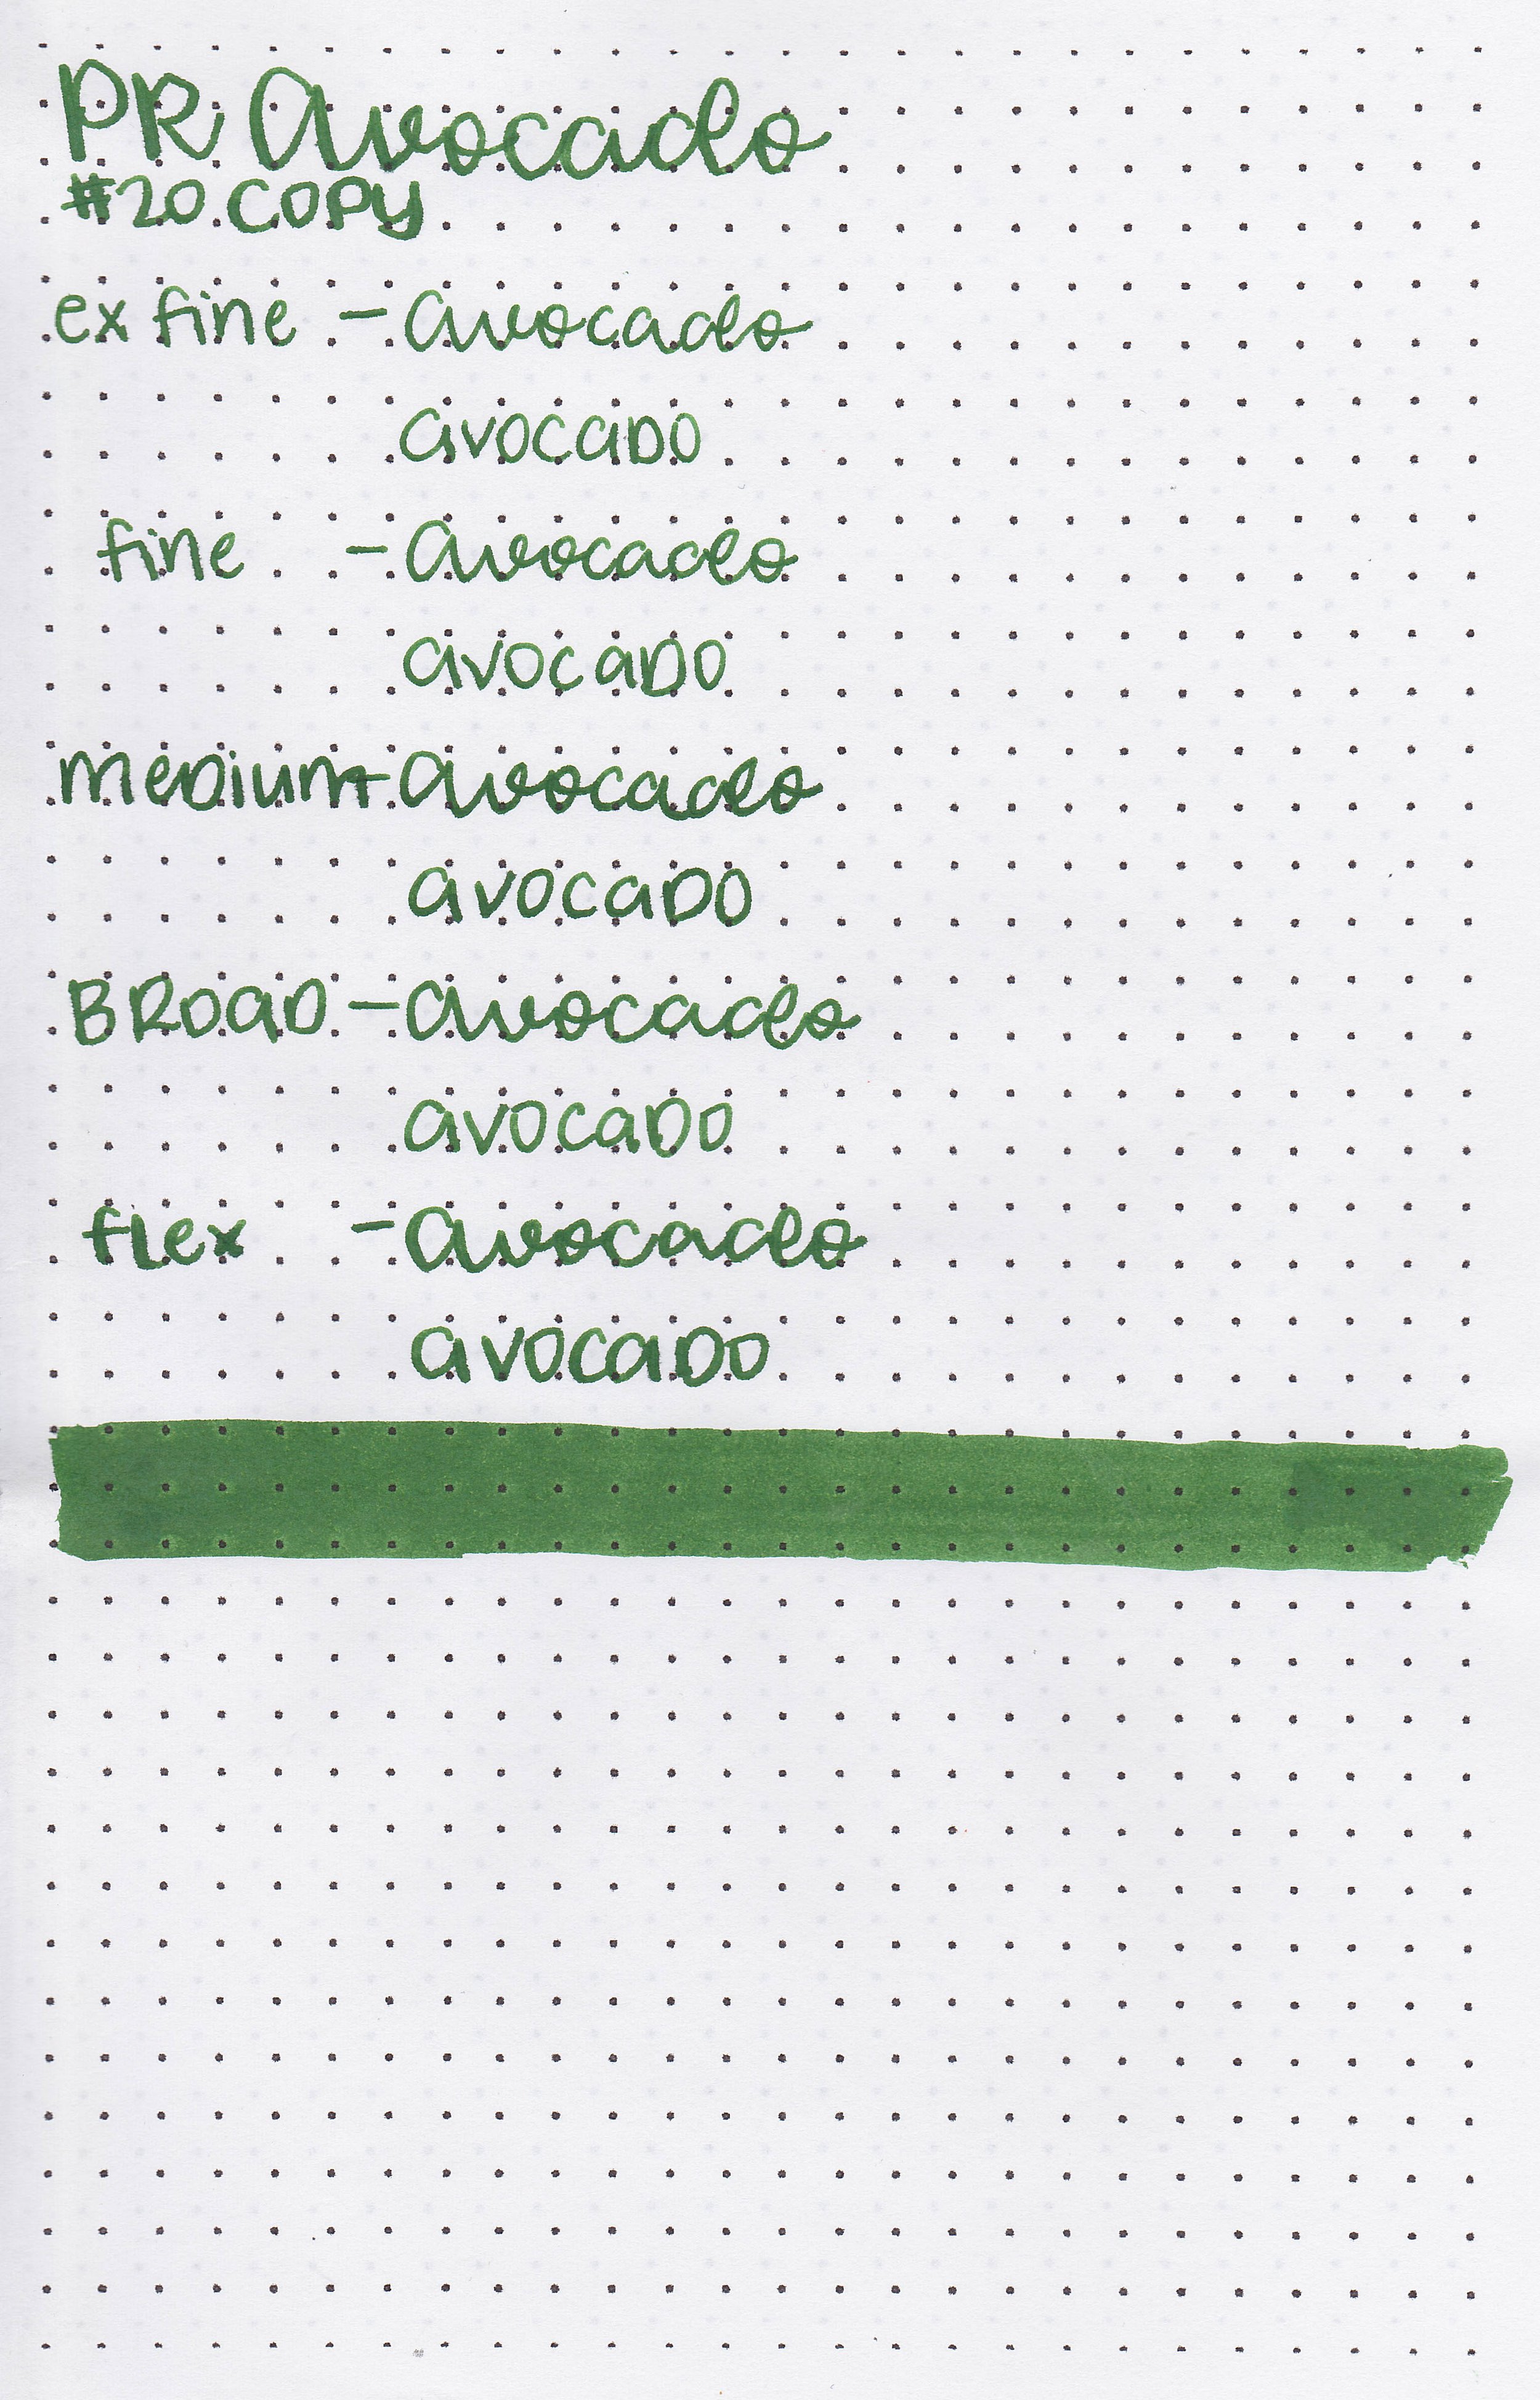 PR Avocado
#20 COPY
ex fine - Avocado
avocado
fine - Avocado
avocado
medium - Avocado
avocado
Broad - Avocado
avocado
flex - Avocado
avocado